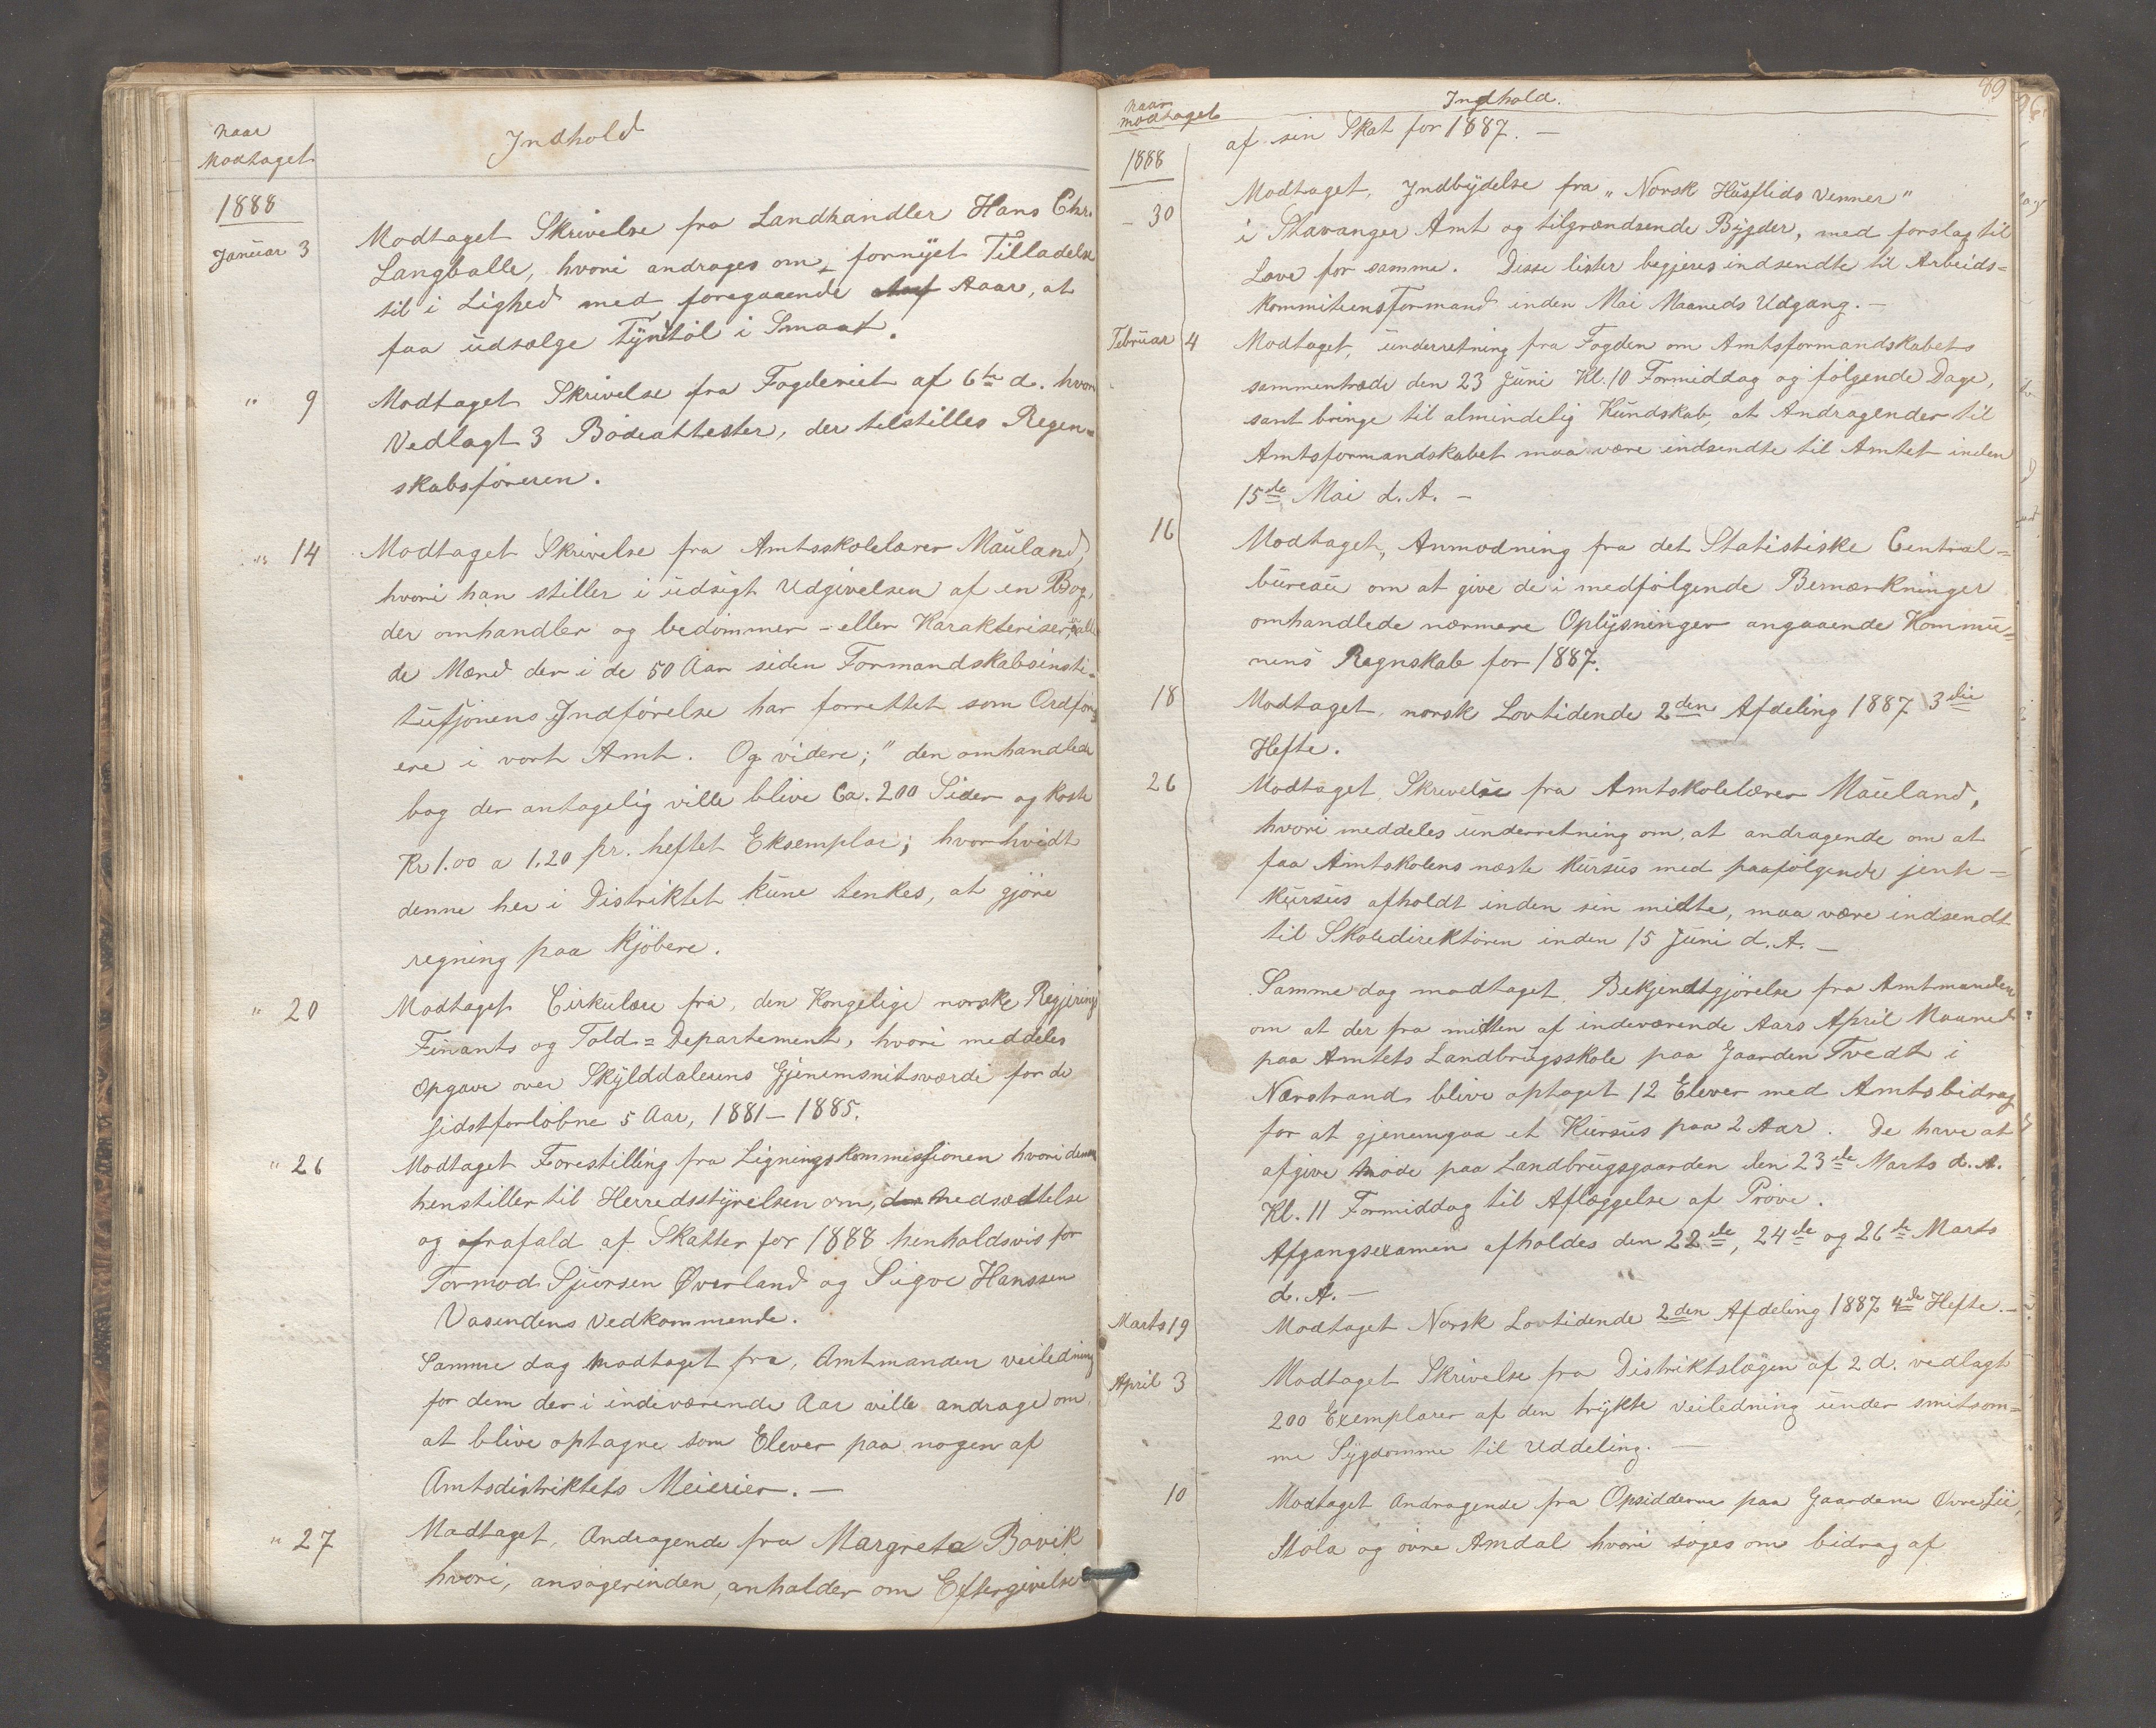 Naar
Modtaget
Indhold
1888
Januar 3
Modtaget Skrivelse fra Landhandler Hans Chr.
Langballe, hvori andrages om fornyet Tilladelse
til i Lighed med foregaaende Aaar, at
faa udsælge Tyntøl i Smaat.
" 9
Modtaget Skrivelse fra Fogderiet af 6te d. hvori
Vedlagt 3 Bødeattester, der tilstilles Regen=
skabsføreren.
" 14
Modtaget Skrivelse fra Amtsskolelærer Mauland,
hvori han stiller i udsigt Udgivelsen af en Bog,
der omhandler og bedømmer - eller Karakteriserer alle
de Mænd der i de 50 Aar siden Formandskabsinsti-
tusjonens Indførelse har forrettet som Ordfør-
ere i vort Amt. Og videre; " den omhandlede
bog der antagelig ville blive Ca. 200 Sider og koste
Kr 1.00 a 1.20 pr. heftet Eksemplar; hvorhvidt
denne her i Distriktet kune tenkes, at gjøre
regning paa Kjøbere.
" 20
Modtaget Cirkulære fra, den Kongelige norske Regjerings
Finants og Told=Departement, hvori meddeles
Opgave over Skylddalerens Gjenemsnitsværdi for de
sidstforløbne 5 Aar, 1881 - 1885.
" 26
Modtaget Forestilling fra Ligningskommissionen hvori denne
henstiller til Herredsstyrelsen om, Nedsættelse
og afrafald af Skatter for 1888 henholdsvis for
Tormod Sjursen Øverland og Sigve Hanssen
Vasendens Vedkommende.
Samme dag Modtaget fra, Amtmanden veiledning
for dem der i indeværende Aar ville andrage om
at blive optagne som Elever paa nogen af
Amtsdistriktets Meierier. -
" 27
Modtaget, Andragende fra Margreta Bøvik
hvori, ansøgerinden, anholder om Eftergivelse
89
Naar
modtaget
Indhold.
1888
af sin Skat for 1887. -
- 30
Modtaget, Indbydelse fra "Norsk Husflids Venner"
i Stavanger Amt og tilgrændsende Bygder, med forslag til
Love for samme. Disse lister begjeres indsendte til Arbeids=
kommiteensFormand inden Mai Maaneds Udgang. -
Februar 4
Modtaget, underretning fra Fogden om Amtsformandskabets
sammentræde den 23 Juni Kl. 10 Formiddag og følgende Dage,
samt bringe til almindelig Kundskab, at Andragender til
Amtsformandskabet maa være indsendte til Amtet inden
15de Mai d. A. -
16
Modtaget, Anmodning fra det Statistiske Central=
bureau om at give de i medfølgende Bemærkninger
omhandlede nærmere Oplysninger angaaende Kommu=
nens Regnskab for 1887.
18
Modtaget, norsk Lovtidende 2den Afdeling 1887 3die
Hefte.
26
Modtaget Skrivelse fra Amtskolelærer Mauland,
hvori meddeles underretning om, at andragende om at
faa Amtskolens næste kursus med paafølgende jente=
kursus afholdt inden sin midte, maa være indsendt
til Skoledirektøren inden 15 Juni d. A. -
Samme dag modtaget, Bekjendtgjørelse fra Amtmanden
om at der fra midten af indeværende Aars April Maaned
paa Amtets Landbrugsskole paa Gaarden Tvedt i
Nærstrand, blive optaget 12 Elever med Amtsbidrag
for at gjenemgaa et Kursus paa 2 Aar. De have at
afgive Møde paa Landbrugsgaarden den 23de Marts d. A.
Kl. 11 Formiddag til Aflæggelse af Prøve.
Afgangsexamen afholdes den 22de, 24de og 26de Marts
d. A. -
Marts 19
Modtaget Norsk Lovtidende 2den Afdeling 1887 4de Hefte. -
April 3
Modtaget Skrivelse fra Distriktslægen af 2 d. vedlagt
200 Exemplarer af den trykte Veiledning under smitsom=
me Sygdomme til Uddeling. -
10
Modtaget Andragende fra Opsidderne paa Gaardene Øvre Lie,
Stola og øvre Amdal hvori søges om bidrag af